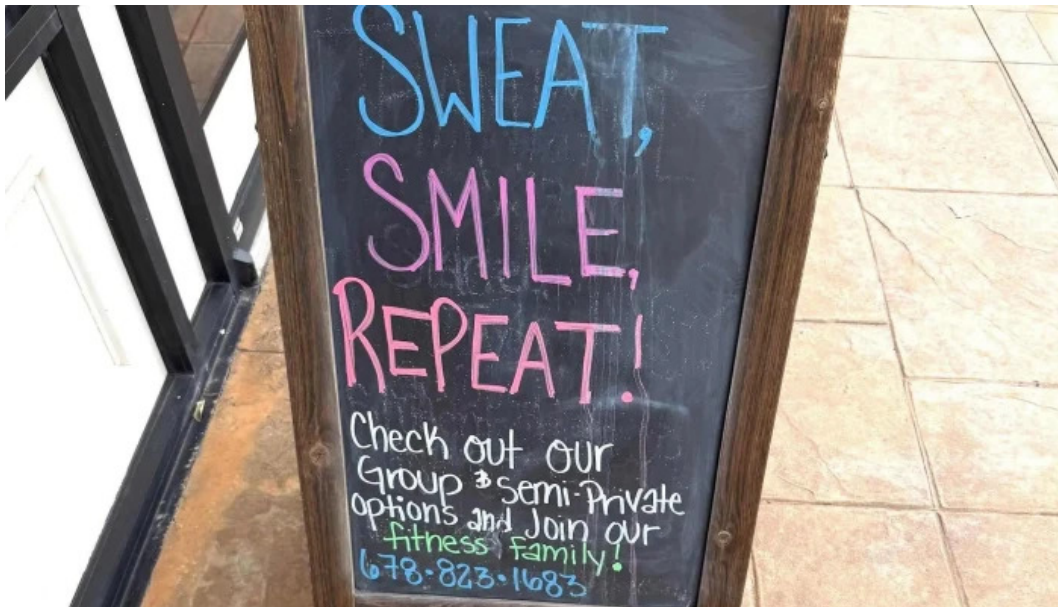 SWEAT,
SMILE,
REPEAT!
Check out our
Group & Semi-Private
options and Join our
fitness family!
678-823-1683